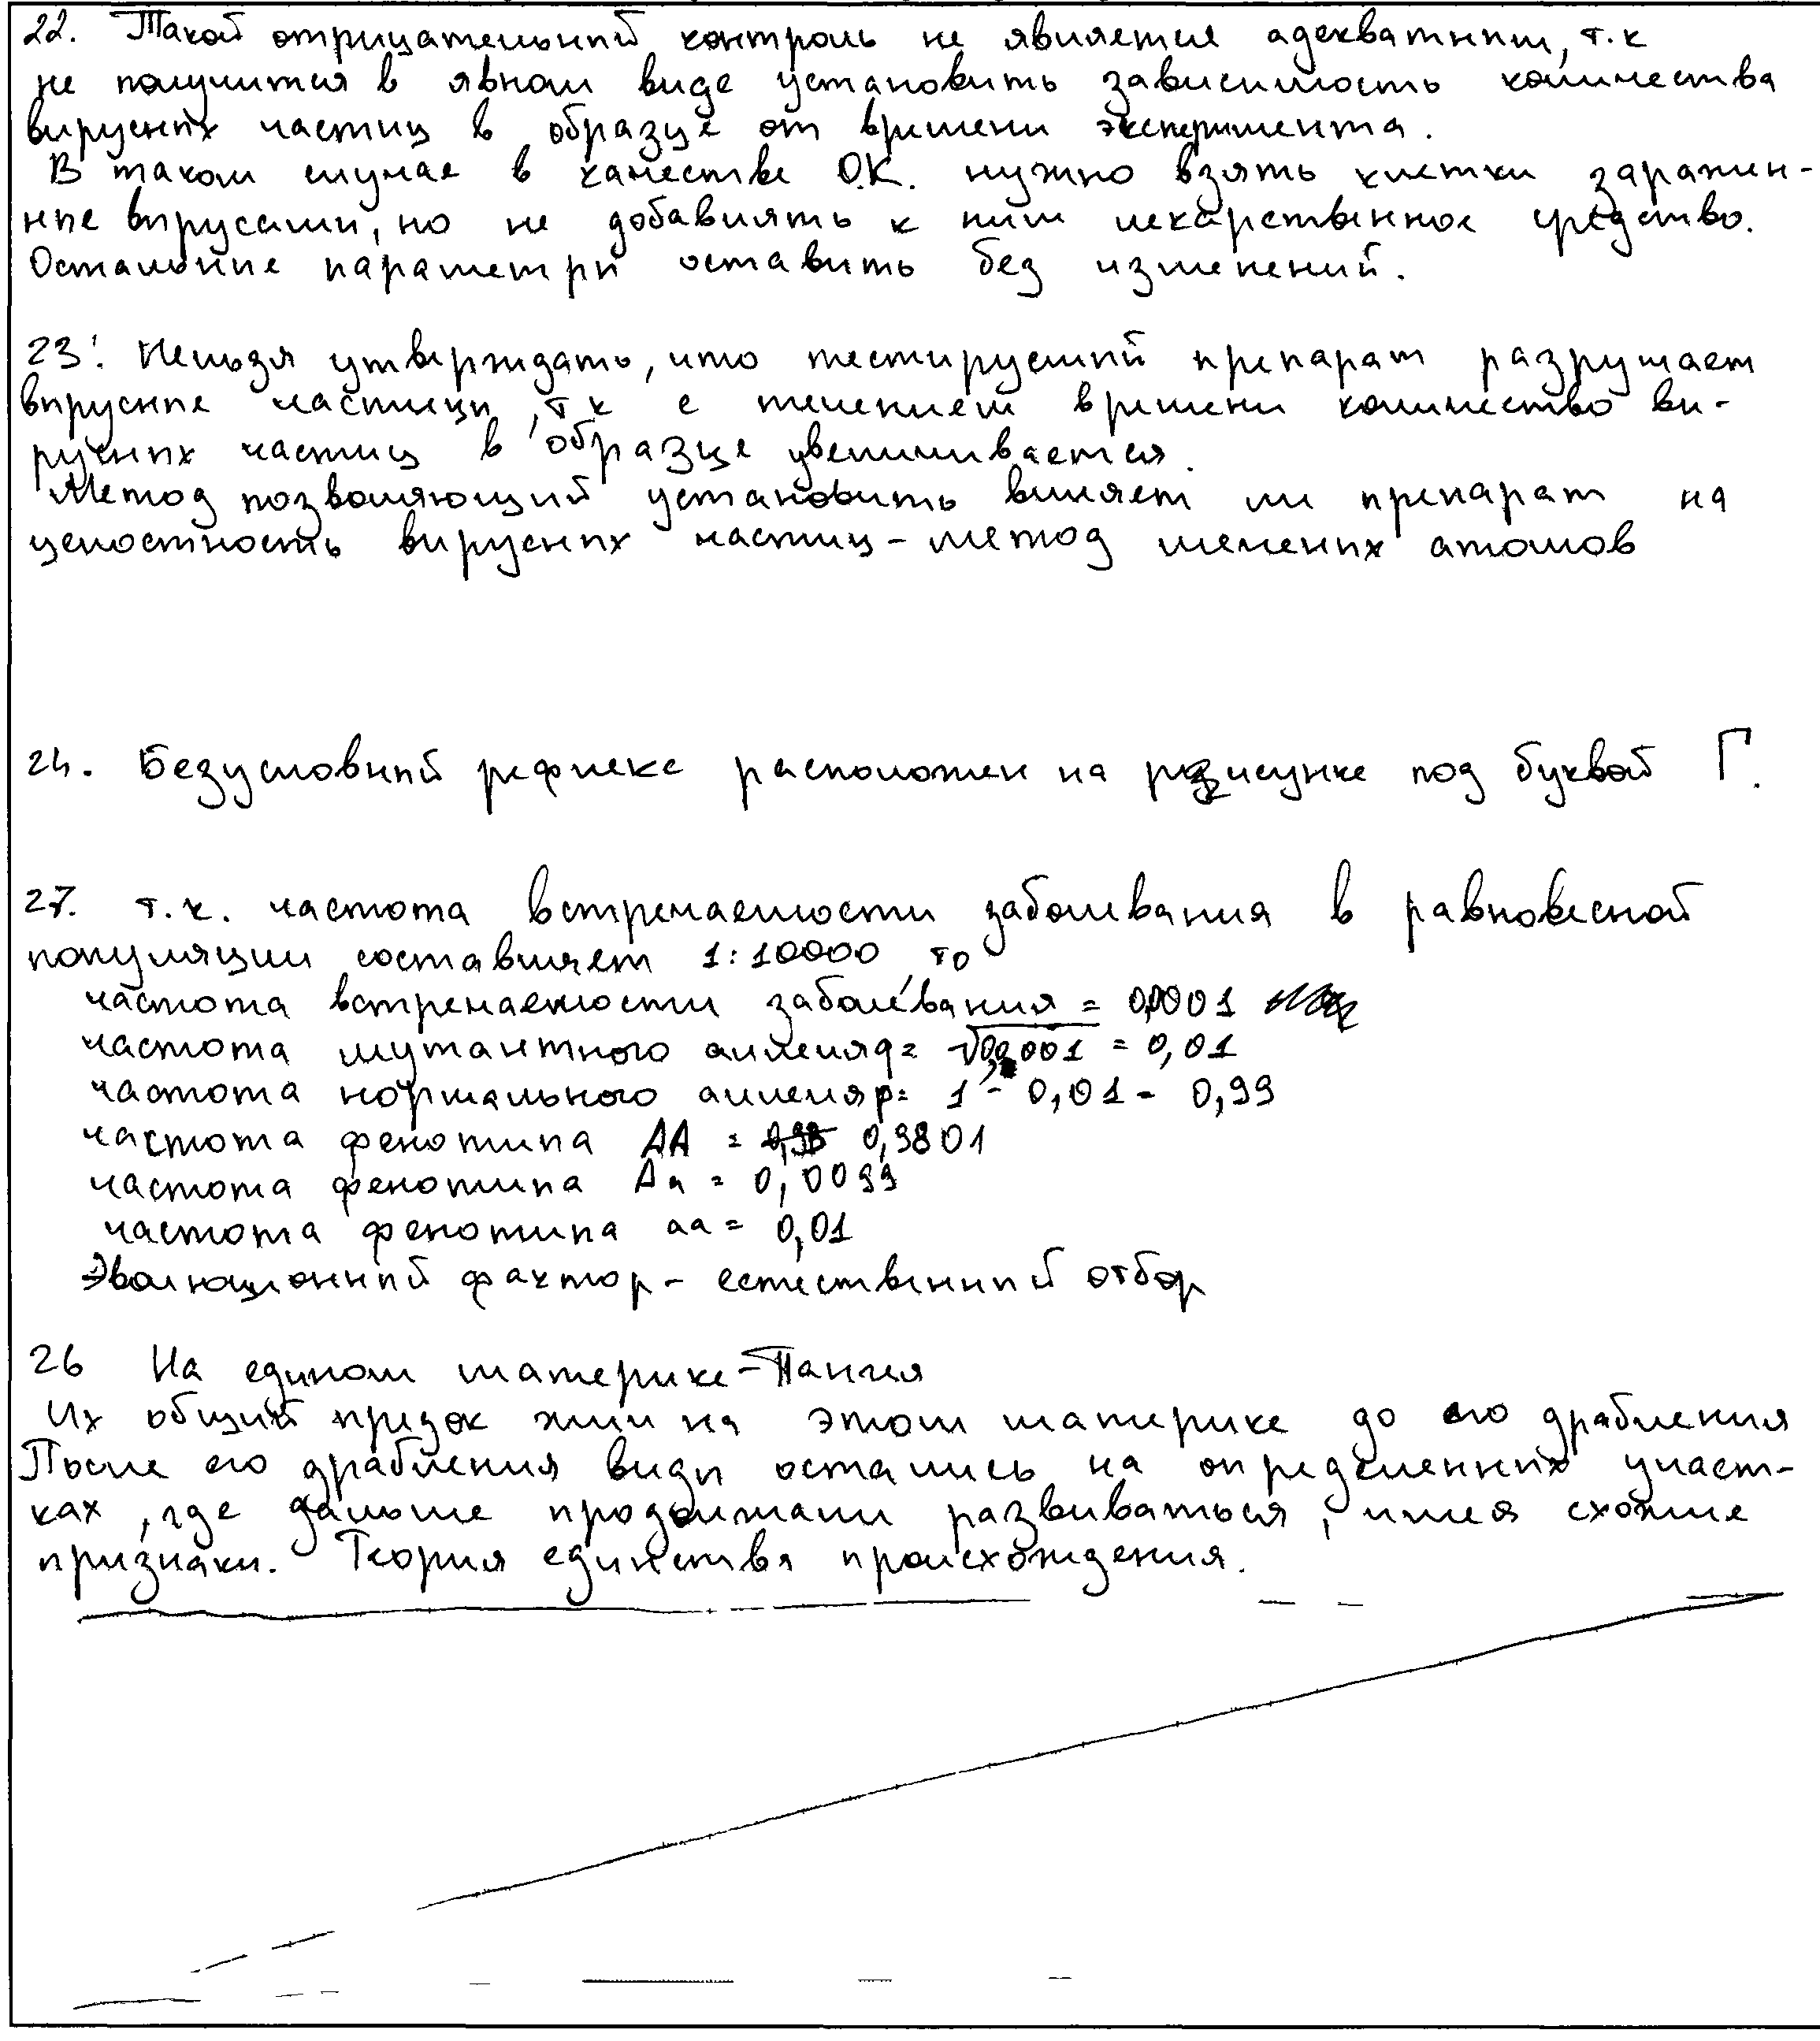 22. Такой отрицательный контроль не является адекватным, т.к
не получится в явном виде установить зависимость количества
вирусных частиц в образце от времени эксперимента.
В таком случае в качестве О.К. нужно взять клетки заражен-
ные вирусами, но не добавлять к ним лекарственное средство.
Остальные параметры оставить без изменений.
23. Нельзя утверждать, что тестируемый препарат разрушает
вирусные частицы, т к с течением времени количество ви-
русных частиц в образце увеличивается.
Метод позволяющий установить влияет ли препарат на
целостность вирусных частиц - метод меченых атомов
24. Безусловный рефлекс расположен на рисунке под буквой Г.
27. т.к. частота встречаемости заболевания в равновесной
популяции составляет 1:10000, то
частота встречаемости заболевания = 0,0001
частота мутантного аллеля q = √0,0001 = 0,01
частота нормального аллеля p = 1 - 0,01 = 0,99
частота фенотипа AA = 0,9801
частота фенотипа Aa = 0,0099
частота фенотипа aa = 0,01
Эволюционный фактор - естественный отбор
26 На едином материке - Пангея
Их общий предок жил на этом материке до его драбления
После его драбления виды остались на определенных участ-
ках, где дальше продолжали развиваться, имея схожие
признаки. Теория единства происхождения.